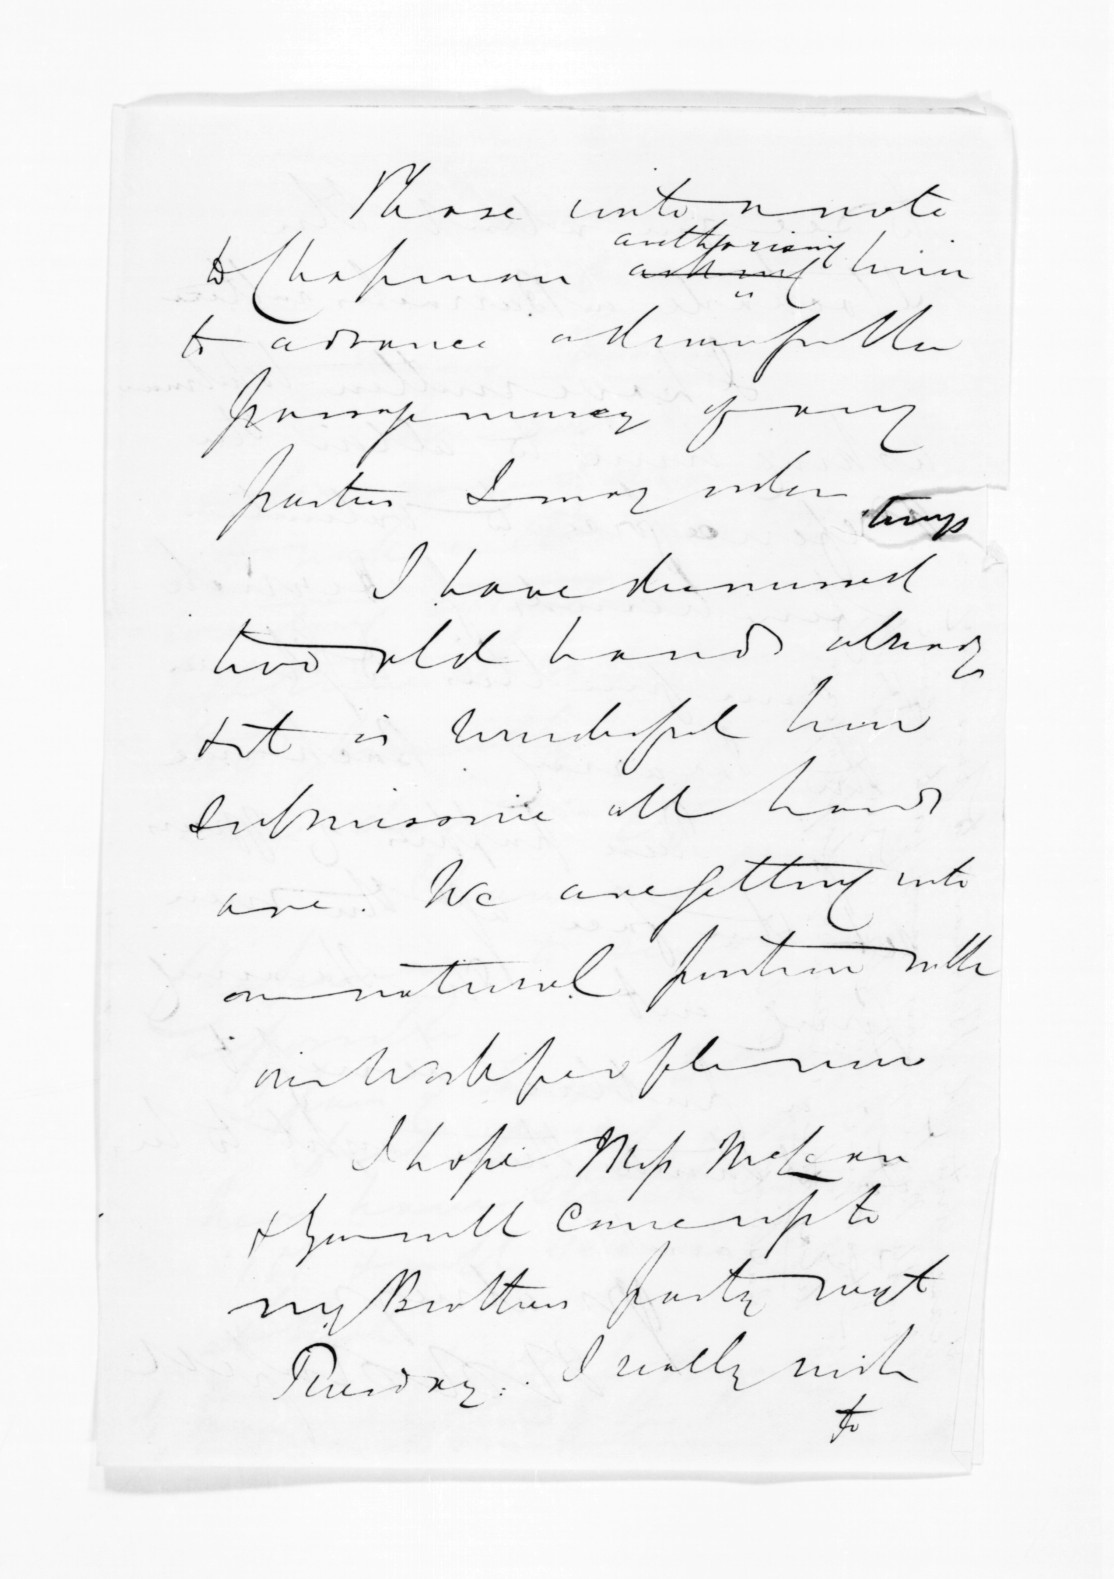 Please write a note
to Chapman authorising asking him
to advance a drumfull
passage money of any
parties I may order
I have dismissed
two old hands already
& it is wonderful how
submissive all hands
are. We are getting into
our natural position with
our Workpeople now
I hope Miss McLean
& you will come up to
my Brothers party next
Tuesday. I really wish
to